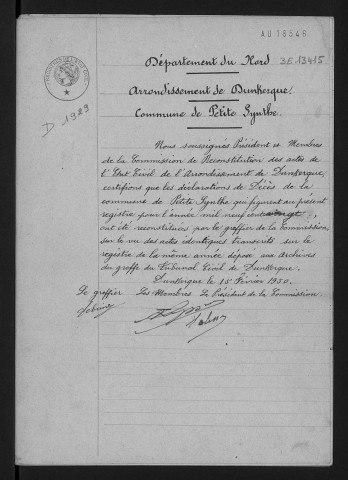 AU 18546
3E 13415
Département du Nord
Arrondissement de Dunkerque
Commune de Petite Synthe.
D 1929
Nous soussignés Président et Membres
de la Commission de Reconstitution des actes de
l'Etat Civil de l'Arrondissement de Dunkerque,
certifions que les déclarations de Décès de la
commune de Petite Synthe qui figurent au présent
registre pour l'année mil neuf cent vingt
ont été reconstituées par le greffier de la Commission,
sur le vu des actes identiques transcrits sur le
registre de la même année déposé aux archives
du greffe du Tribunal Civil de Dunkerque.
Dunkerque le 15 Février 1950.
Le greffier Les Membres Le Président de la Commission